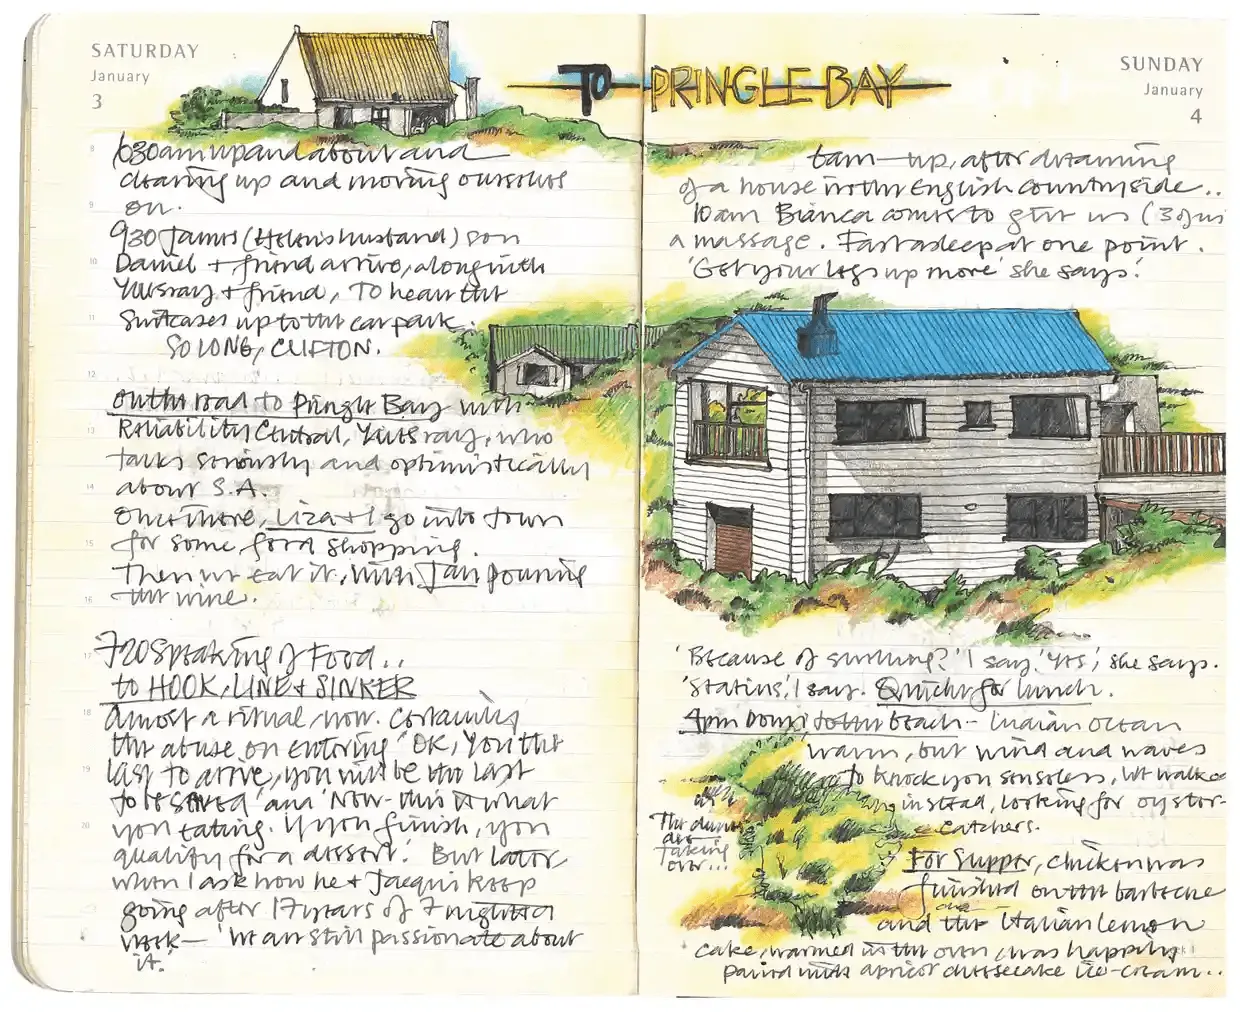 SATURDAY
January
3
TO PRINGLE BAY
SUNDAY
January
4
630am up and about and
clearing up and moving ourselves
on.
930 James (Helen's husband) son
Daniel + friend arrive, along with
+ friend, To hear the
suitcases up to the car park.
SO LONG, CLIFTON.
on the road to Pringle Bay with
Reliability Central, who
talks seriously and optimistically
about S.A.
Once there, Liza + I go into town
for some food shopping.
Then we eat it, with Jan pouring
the wine.
720 Speaking of Food..
to HOOK, LINE + SINKER
Almost a ritual now. Certainly
the abuse on entering 'OK, you the
last to arrive, you will be the last
to be served' and 'Now - this is what
you eating. If you finish, you
qualify for a dessert.' But later
when I ask how he + Jacqui keep
going after 17 years of 7 nights a
week - 'We are still passionate about
it.'
6am - up, after dreaming
of a house in the English countryside..
10am Bianca comes to give us (3 of us
a massage. Fast asleep at one point.
'Get your legs up more' she says.
'Because of swelling?' I say. 'Yes', she says.
'Statins', I say. Quiche for lunch.
4pm Down to the beach - Indian Ocean
warm, but wind and waves
to knock you senseless, we walked
instead, looking for oyster-
catchers.
The dunes
are
Taking
over...
For Supper, chicken was
finished on the barbecue
and the Italian lemon
cake, warmed in the oven, was happily
paired with apricot cheesecake ice-cream..
8
9
10
11
12
13
14
15
16
17
18
19
20